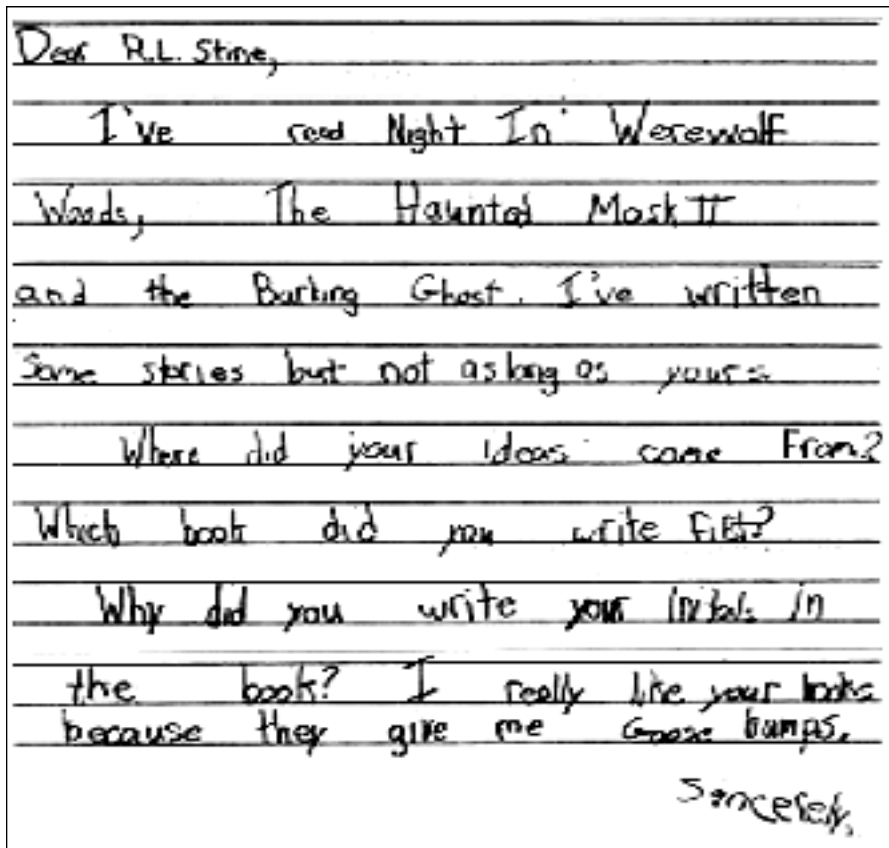 Dear R.L. Stine,
I've read Night In Werewolf
Woods, The Haunted Mask II
and the Barking Ghost. I've written
Some stories but not as long as yours.
Where did your ideas come From?
Which book did you write first?
Why did you write your initals in
the book? I really like your books
because they give me Goose bumps.
Sincerely,